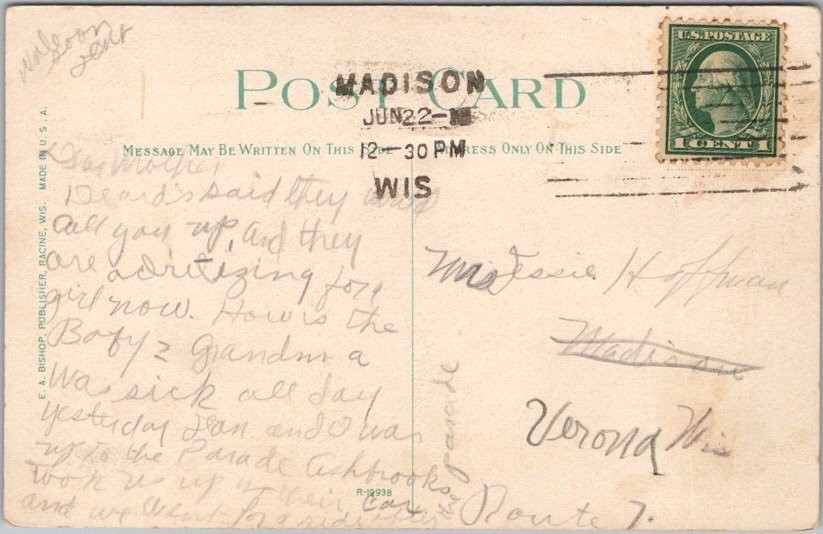 POST CARD
MESSAGE MAY BE WRITTEN ON THIS SIDE ADDRESS ONLY ON THIS SIDE
MADISON
JUN 22
12-30 PM
WIS
U.S. POSTAGE
1 CENT 1
E. A. BISHOP, PUBLISHER, RACINE, WIS. MADE IN U. S. A.
soon
Dear Mother,
Beard's said they would
call you up, and they
are adritizing for a
girl now. How is the
Baby? Grandma
was sick all day
yesterday Jean and I was
up to the Parade Ashbrooks
took us up in their car
and we went for a ride after
the parade
R-12938
Mrs Jessie Hoffman
Madison
Verona Wis
Route 7.